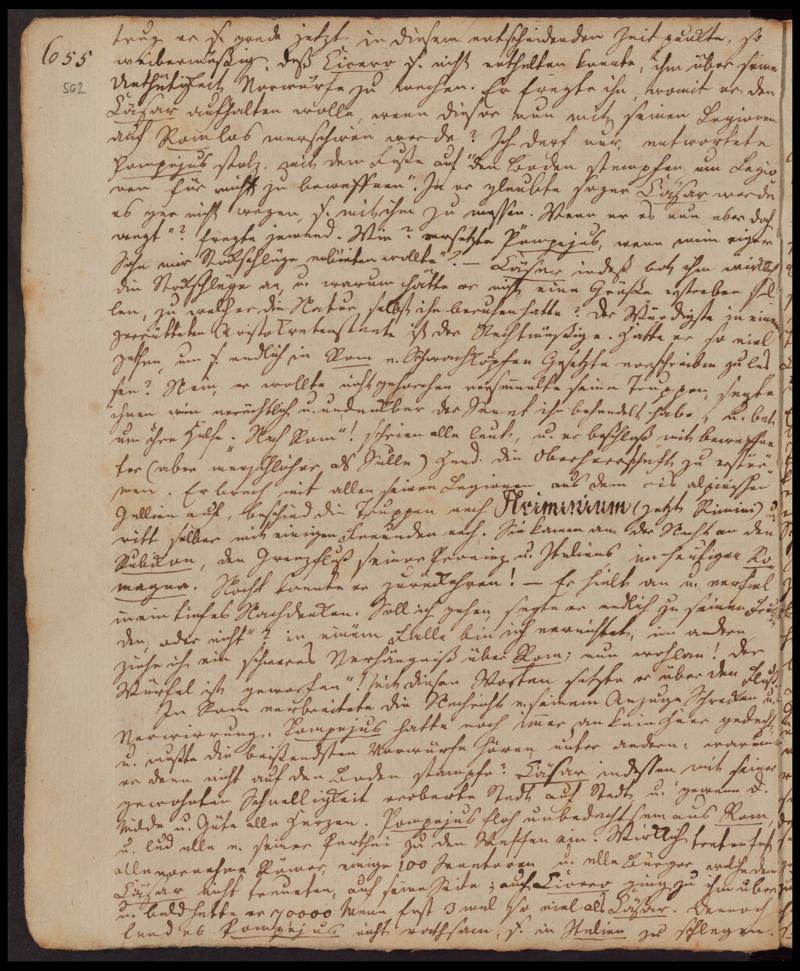 6055
562
trug er s. grade jetzt in diesem entscheidenden Zeitpunkte, so
weibermäßig, daß Cicero s. nicht enthalten konnte, ihm über seine
Unthätigkeit Vorwürfe zu machen. Er fragte ihn, womit er den
Cäsar aufhalten wolle, wenn dieser nun mit seinen Legionen
auf Rom los marschiren werde? Ich darf nur, antwortete
Pompejus stolz, mit dem Fuße auf den Boden stampfen um Legio
nen für mich zu bewaffnen". Ja er glaubte sogar Cäsar werde
es gar nicht wagen, s. mit ihm zu messen. Wenn er es nun aber doch
wagt"? fragte jemand. Wie? versetzte Pompejus, wenn mein eigner
Sohn mir Stockschläge anbieten wollte"? — Cäsar indeß bot ihm wirklich
die Stockschläge an, u. warum hätte er nicht eine Größe erstreben sol
len, zu welcher die Natur selbst ihn berufen hatte? Der Würdigste in einem
zerrütteten Aristokratenstaate ist der Rechtmäßige. Hatte er so viel
gethan, um s. endlich in Rom v. Schwachköpfen Gesetzte vorschreiben zu las
sen? Nein, er wollte nicht gehorchen versammelte seine Truppen, sagte
ihnen wie verächtlich u. undankbar der Senat ihn behandelt habe, u. bat
um ihre Hülfe. Nach Rom"! schrien alle laut, u. er beschloß mit bewaffne
ter (aber menschlicher, als Sulla) Hand die Oberherrschaft zu erstür
men. Er brach mit allen seinen Legionen aus dem cis alpinischen
Gallien auf, beschied die Truppen nach Ariminium (jetzt Rimini) u.
ritt selber mit einigen Freunden nach. Sie kamen an der Nacht an den
Rubikon, den Grenzfluß seiner Provinz u. Italiens im heutigen Ro
magna. Noch konnte er zurückkehren! — Er hielt an u. verfiel
in ein tiefes Nachdenken. Soll ich gehen, sagte er endlich zu seinen Freun
den, oder nicht"? in einem Falle bin ich vernichtet, im andern
ziehe ich ein schweres Verhängniß über Rom; nun wohlan! Der
Würfel ist geworfen"! Mit diesen Worten setzte er über den Fluß.
In Rom verbreitete die Nachricht v. seinem Anzuge Schrecken u.
Verwirrung. Pompejus hatte noch immer an kein Heer gedacht,
u. mußte die beißendsten Vorwürfe hören unter andern: warum
er denn nicht auf den Boden stampfe? Cäsar indessen mit seiner
gewohnten Schnelligkeit eroberte Stadt auf Stadt, u. gewann d.
Milde u. Güte alle Herzen. Pompejus floh unbedachtsam aus Rom,
u. lud alle v. seiner Parthei zu den Waffen ein. Wirklich traten fast
alle vornehme Römer, einige 100 Senatoren u. alle Bürger welche dem
Cäsar nicht traueten, auf seine Seite; auch Cicero ging zu ihm über
u. bald hatte er 70000 Mann fast 3 mal so viel als Cäsar. Dennoch
fand es Pompejus nicht rathsam, s. in Italien zu schlagen.